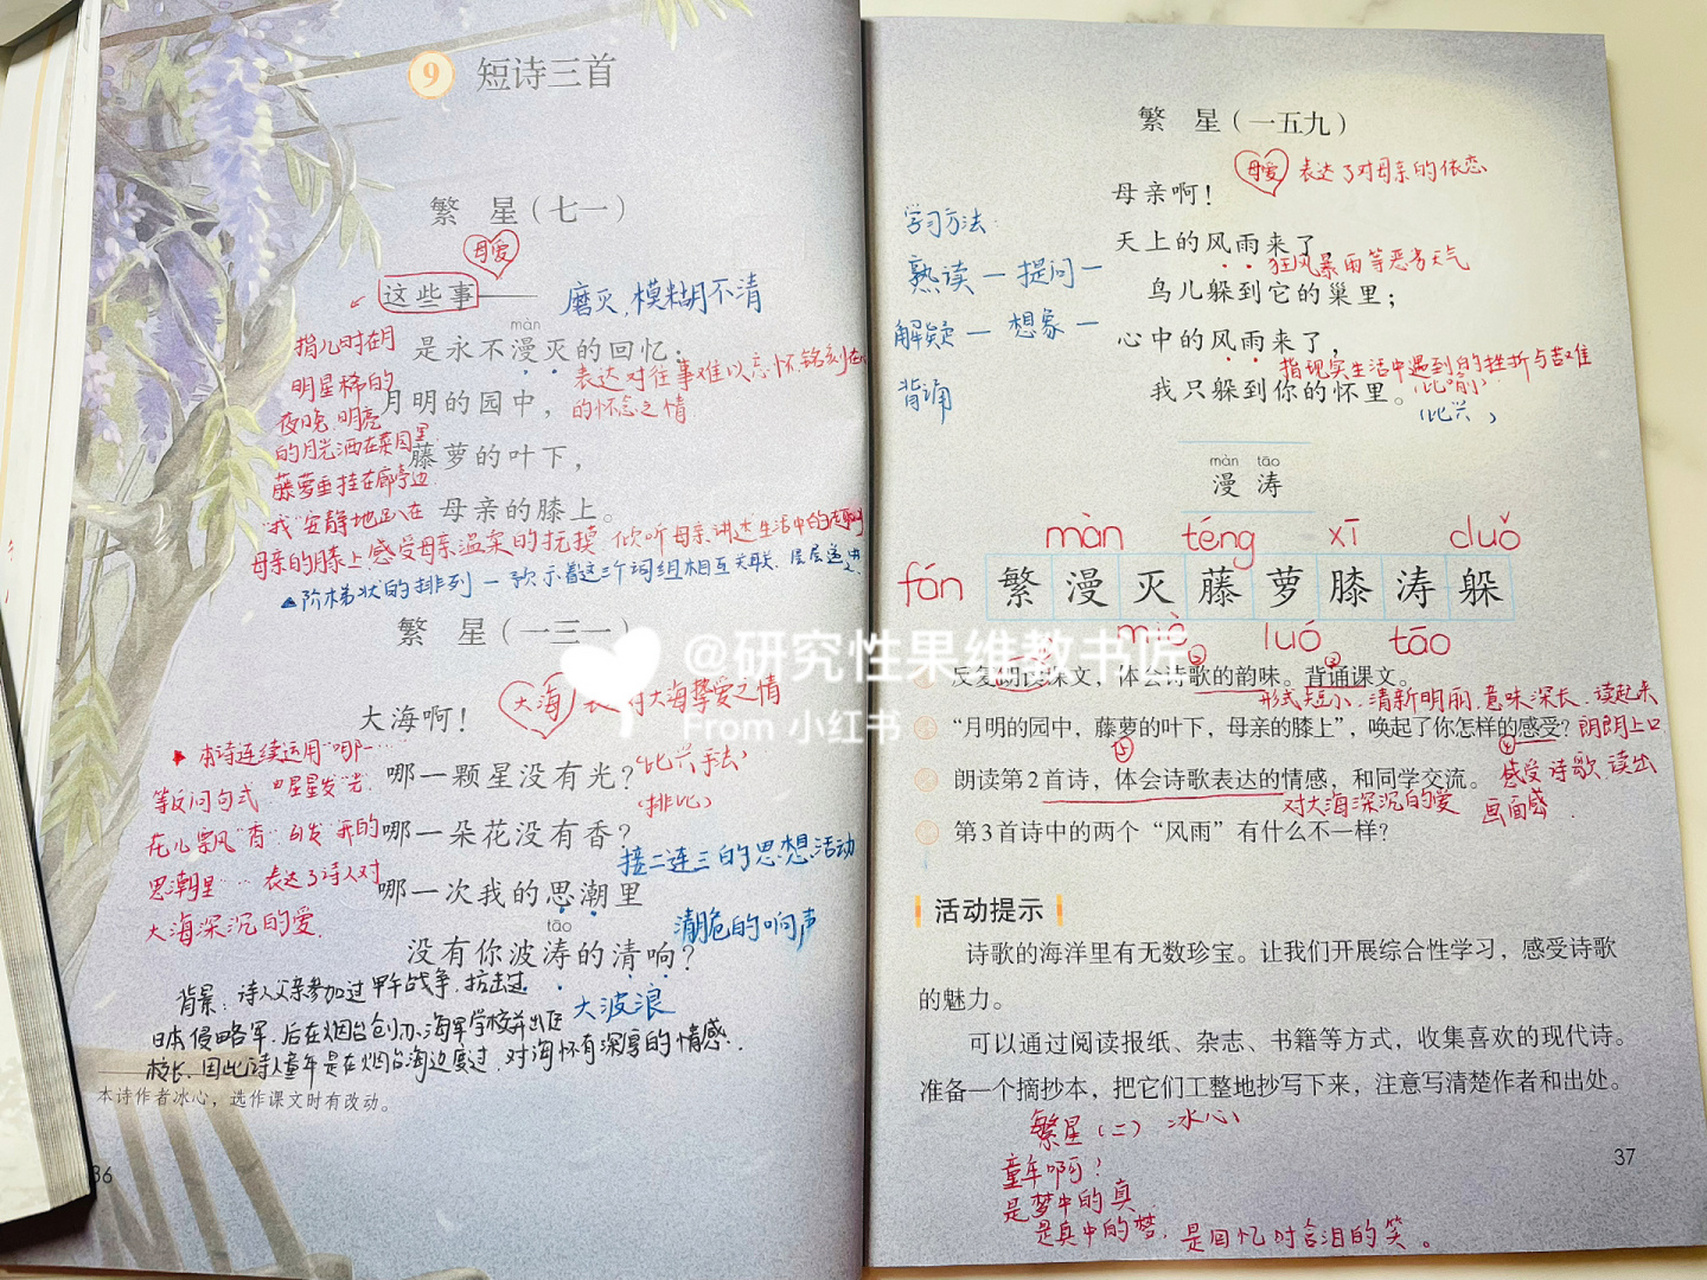 9 短诗三首
繁 星（七一）
母爱
这些事——
磨灭，模糊不清
màn
是永不漫灭的回忆：
表达对往事难以忘怀、铭刻在心
的怀念之情
月明的园中，
藤萝的叶下，
母亲的膝上。
指儿时在月
明星稀的
夜晚，明亮
的月光洒在菜园里
藤萝垂挂在廊亭边
“我”安静地趴在
母亲的膝上感受母亲温柔的抚摸，倾听母亲讲述生活中的
▲阶梯状的排列—预示着这三个词组相互关联，层层递进
繁 星（一三一）
大海
对大海挚爱之情
大海啊！
哪一颗星没有光？
（比兴手法）
（排比）
哪一朵花没有香？
接二连三的思想活动
哪一次我的思潮里
清脆的响声
tāo
没有你波涛的清响？
大波浪
本诗连续运用“哪一……”
等反问句式，由星星发“光”
花儿飘“香”引发“我的
思潮里……表达了诗人对
大海深沉的爱.
背景：诗人父亲参加过甲午战争，抗击过
日本侵略军，后在烟台创办海军学校并出任
校长，因此诗人童年是在烟台海边度过，对海怀有深厚的情感.
本诗作者冰心，选作课文时有改动。
36
繁 星（一五九）
母爱 表达了对母亲的依恋
母亲啊！
天上的风雨来了，
狂风暴雨等恶劣天气
鸟儿躲到它的巢里；
心中的风雨来了，
指现实生活中遇到的挫折与苦难
我只躲到你的怀里。
（比喻）
（比兴）
学习方法：
熟读—提问—
解疑—想象—
背诵
màn tāo
漫 涛
màn téng xī duǒ
fán 繁 漫 灭 藤 萝 膝 涛 躲
miè luó tāo
反复朗读课文，体会诗歌的韵味。背诵课文。
形式短小，清新明丽，意味深长，读起来
朗朗上口
“月明的园中，藤萝的叶下，母亲的膝上”，唤起了你怎样的感受？
朗读第2首诗，体会诗歌表达的情感，和同学交流。
感受诗歌，读出
画面感.
对大海深沉的爱
第3首诗中的两个“风雨”有什么不一样？
活动提示
诗歌的海洋里有无数珍宝。让我们开展综合性学习，感受诗歌
的魅力。
可以通过阅读报纸、杂志、书籍等方式，收集喜欢的现代诗。
准备一个摘抄本，把它们工整地抄写下来，注意写清楚作者和出处。
繁星（二） 冰心
童年啊？
是梦中的真，
是真中的梦，是回忆时含泪的笑。
37
@研究性果维教书匠
From 小红书